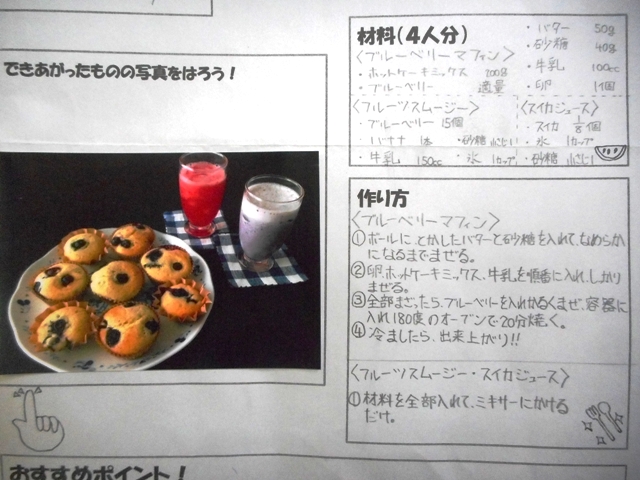 できあがったものの写真をはろう！
材料(4人分)
〈ブルーベリーマフィン〉
・ホットケーキミックス 200g
・ブルーベリー 適量
・バター 50g
・砂糖 40g
・牛乳 100cc
・卵 1個
〈フルーツスムージー〉
・ブルーベリー 15個
・バナナ 1本 ・砂糖 小さじ1
・牛乳 150cc ・氷 1カップ
〈スイカジュース〉
・スイカ 1/8個
・氷 1カップ
・砂糖 小さじ1
作り方
〈ブルーベリーマフィン〉
①ボールに、とかしたバターと砂糖を入れて、なめらか
になるまでまぜる。
②卵、ホットケーキミックス、牛乳を順番に入れ、しっかり
まぜる。
③全部まざったら、ブルーベリーを入れかるくまぜ、容器に
入れ180度のオーブンで20分焼く。
④冷ましたら、出来上がり!!
〈フルーツスムージー・スイカジュース〉
①材料を全部入れて、ミキサーにかける
だけ。
おすすめポイント！